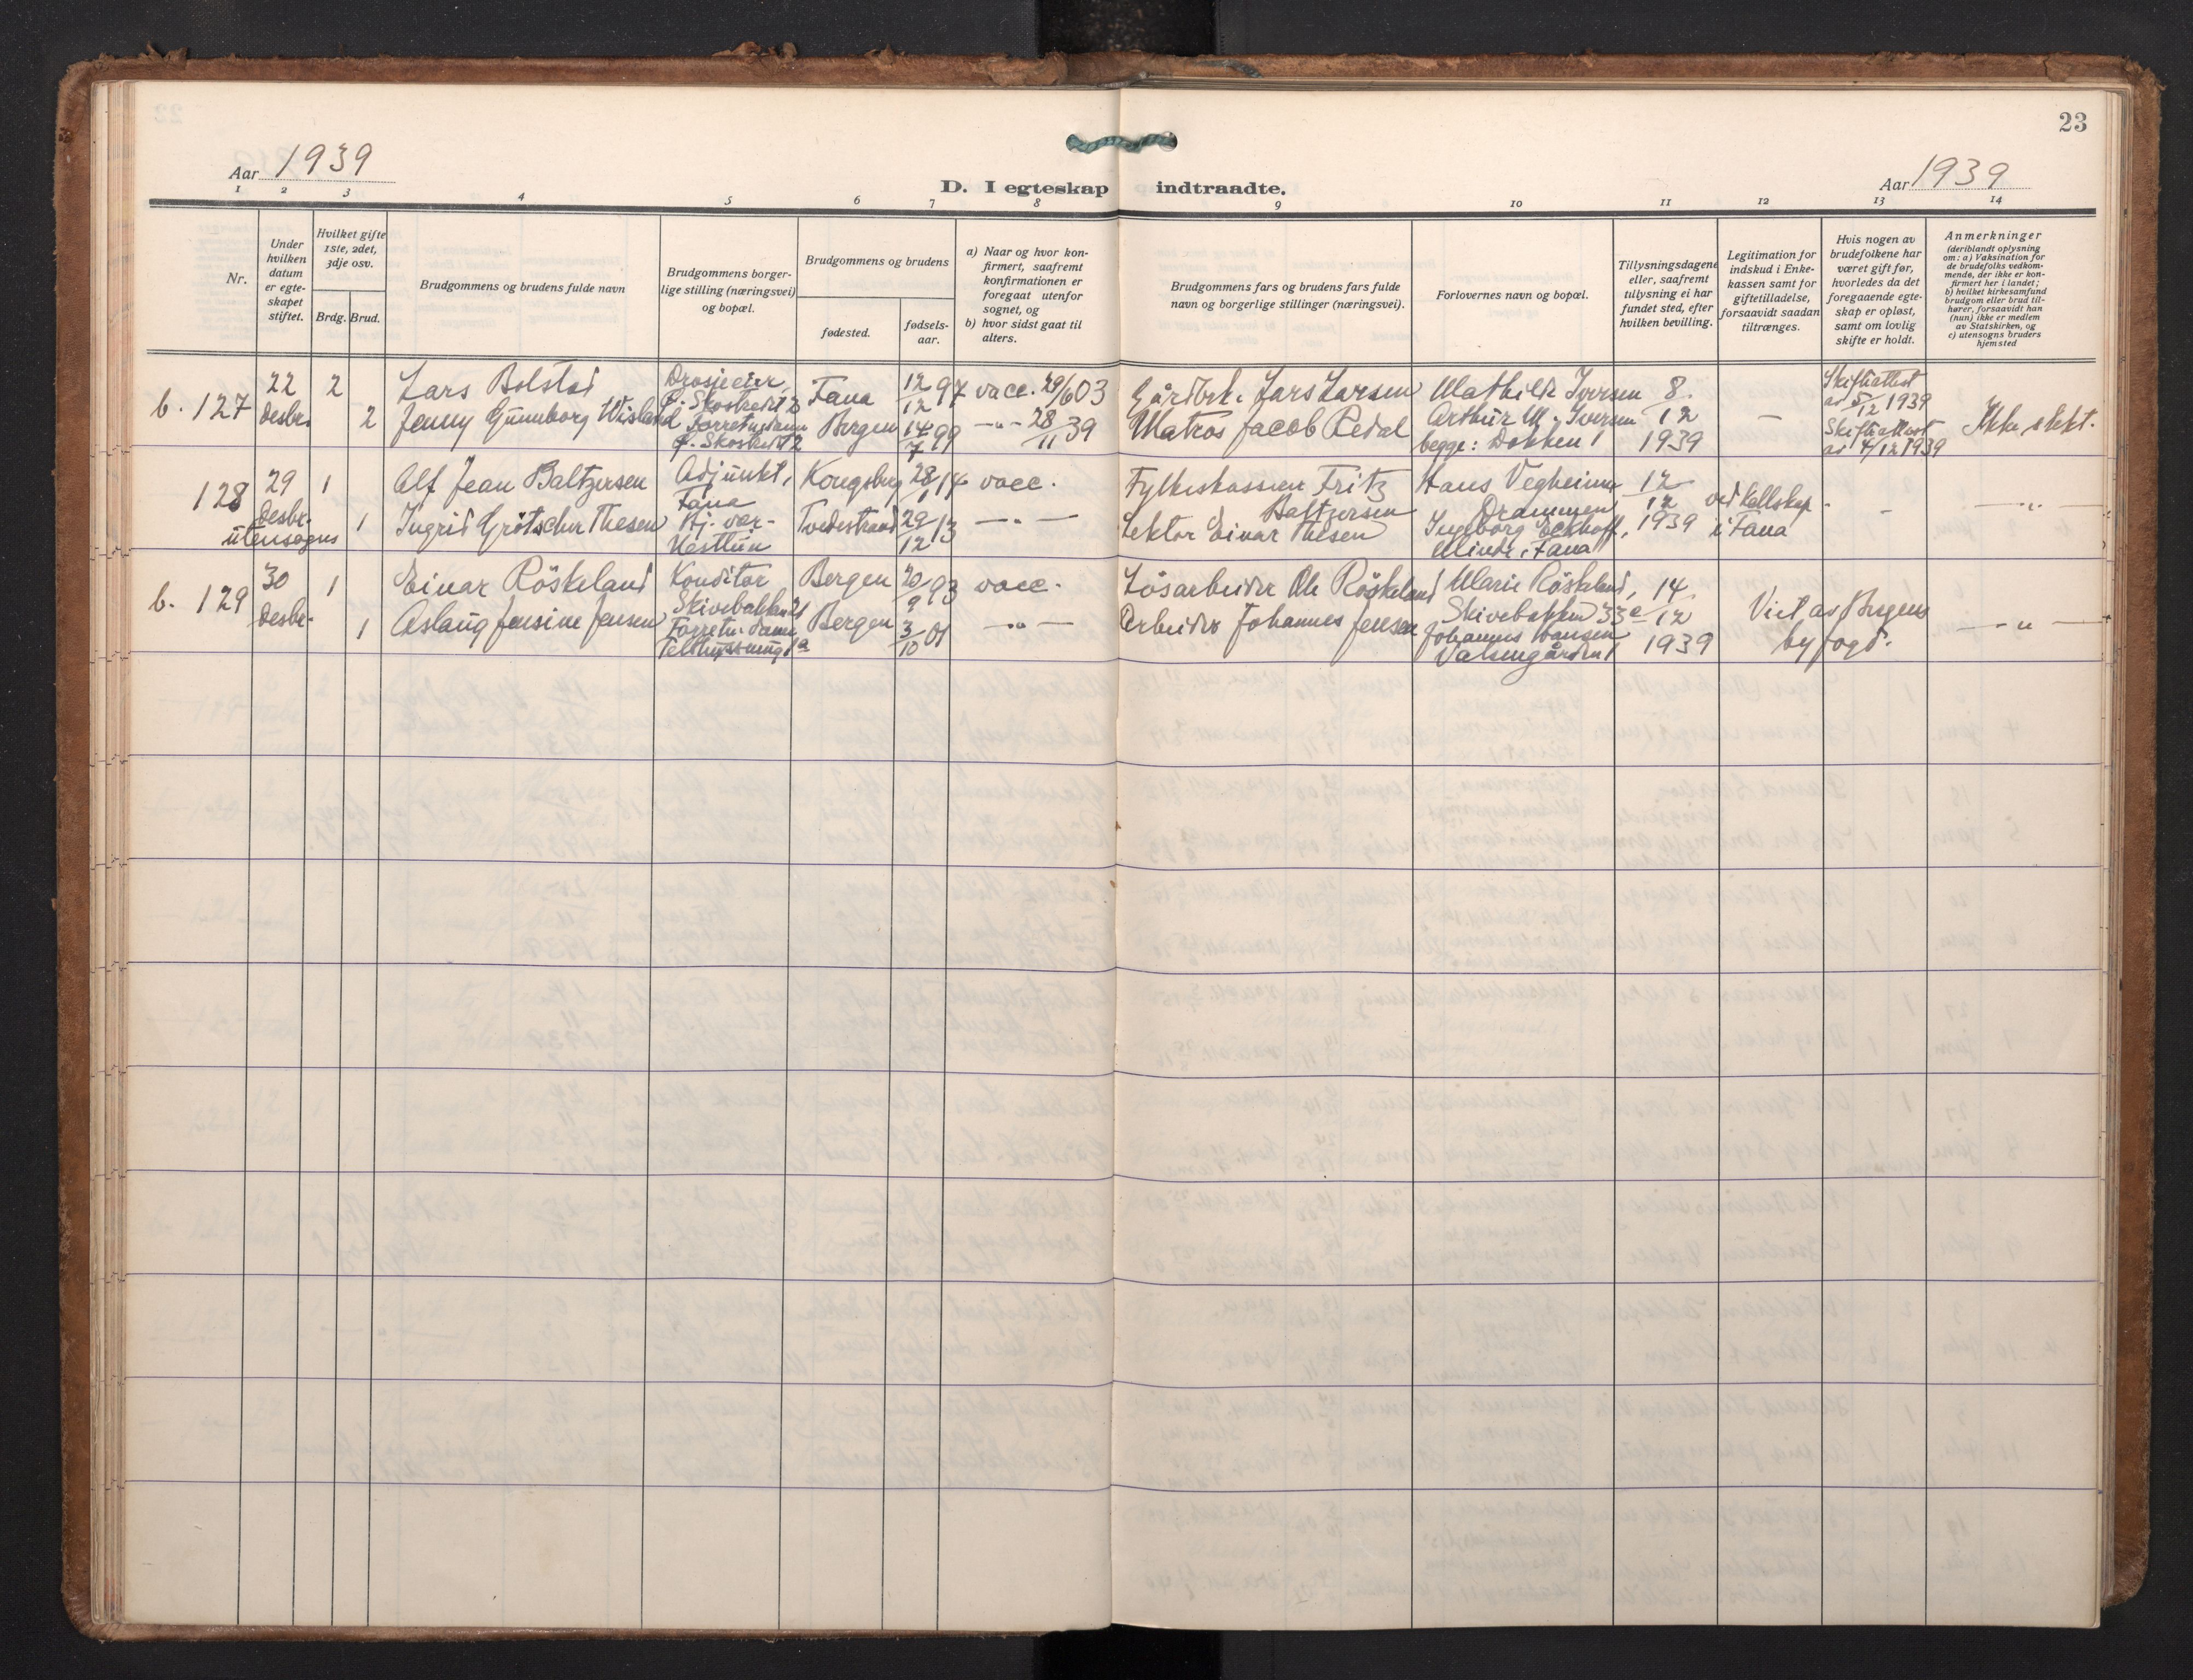 23
Aar 1939
D. I egteskap indtraadte.
Aar 1939
1 2 3 4 5 6 7 8 9 10 11 12 13 14
Nr.
Under
hvilken
datum
er egte-
skapet
stiftet.
Hvilket gifte
1ste, 2det,
3dje osv.
Brdg. Brud.
Brudgommens og brudens fulde navn
Brudgommens borger-
lige stilling (næringsvei)
og bopæl.
Brudgommens og brudens
fødested.
fødsels-
aar.
a) Naar og hvor kon-
firmert, saafremt
konfirmationen er
foregaat utenfor
sognet, og
b) hvor sidst gaat til
alters.
Brudgommens fars og brudens fars fulde
navn og borgerlige stillinger (næringsvei).
Forlovernes navn og bopæl.
Tillysningsdagene
eller, saafremt
tillysning ei har
fundet sted, efter
hvilken bevilling.
Legitimation for
indskud i Enke-
kassen samt for
giftetilladelse,
forsaavidt saadan
tiltrænges.
Hvis nogen av
brudefolkene har
været gift før,
hvorledes da det
foregaaende egte-
skap er opløst,
samt om lovlig
skifte er holdt.
Anmerkninger
(deriblandt oplysning
om: a) Vaksination for
de brudefolks vedkom-
mende, der ikke er kon-
firmert her i landet;
b) hvilket kirkesamfund
brudgom eller brud til-
hører, forsaavidt han
(hun) ikke er medlem
av Statskirken, og
c) utensogns bruders
hjemsted
b. 127
22
desbr.
2
2
Lars Bolstad
Jenny Gunnborg Wisland
Drosjeeier,
Ø. Skostredet 2
Forretn.dame
Ø. Skostredet 2
Fana
Bergen
12/12 97
14/7 99
vacc. 29/6 03
-"- 28/11 39
Gårdbr. Lars Larsen
Matros Jacob Redal
Mathilde Iversen
Arthur M. Iversen
begge: Dokken 1
8.
12
1939
-
Skifteattest
av 5/12 1939
Skifteattest
av 4/12 1939
Ikke slekt.
128
29
desbr.
utensogns
1
1
Alf Jean Baltzersen
Ingrid Grötscher Thesen
Adjunkt,
Fana
Hj. vær-
Nesttun
Kongsberg
Tvedestrand
28/1 14
29/12 13
vacc.
-"-
Fylkeskasserer Fritz
Baltzersen
Lektor Einar Thesen
Hans Vegheim
Drammen
Ingeborg Eckhoff,
Minde i Fana
12
12
1939
ved Kallskap
i Fana
-
-"-
b. 129
30
desbr.
1
1
Einar Röskeland
Aslaug Jensine Jensen
Konditor
Skivebakken 21
Forretn. dame
Telthussmug 1a
Bergen
Bergen
20/9 93
3/10 01
vacc.
-"-
Lösarbeider Ole Röskeland
Arbeider Johannes Jensen
Marie Röskeland,
Skivebakken 33e
Johannes Hansen
14
12
1939
Viet av Bergens
byfogd.
-"-